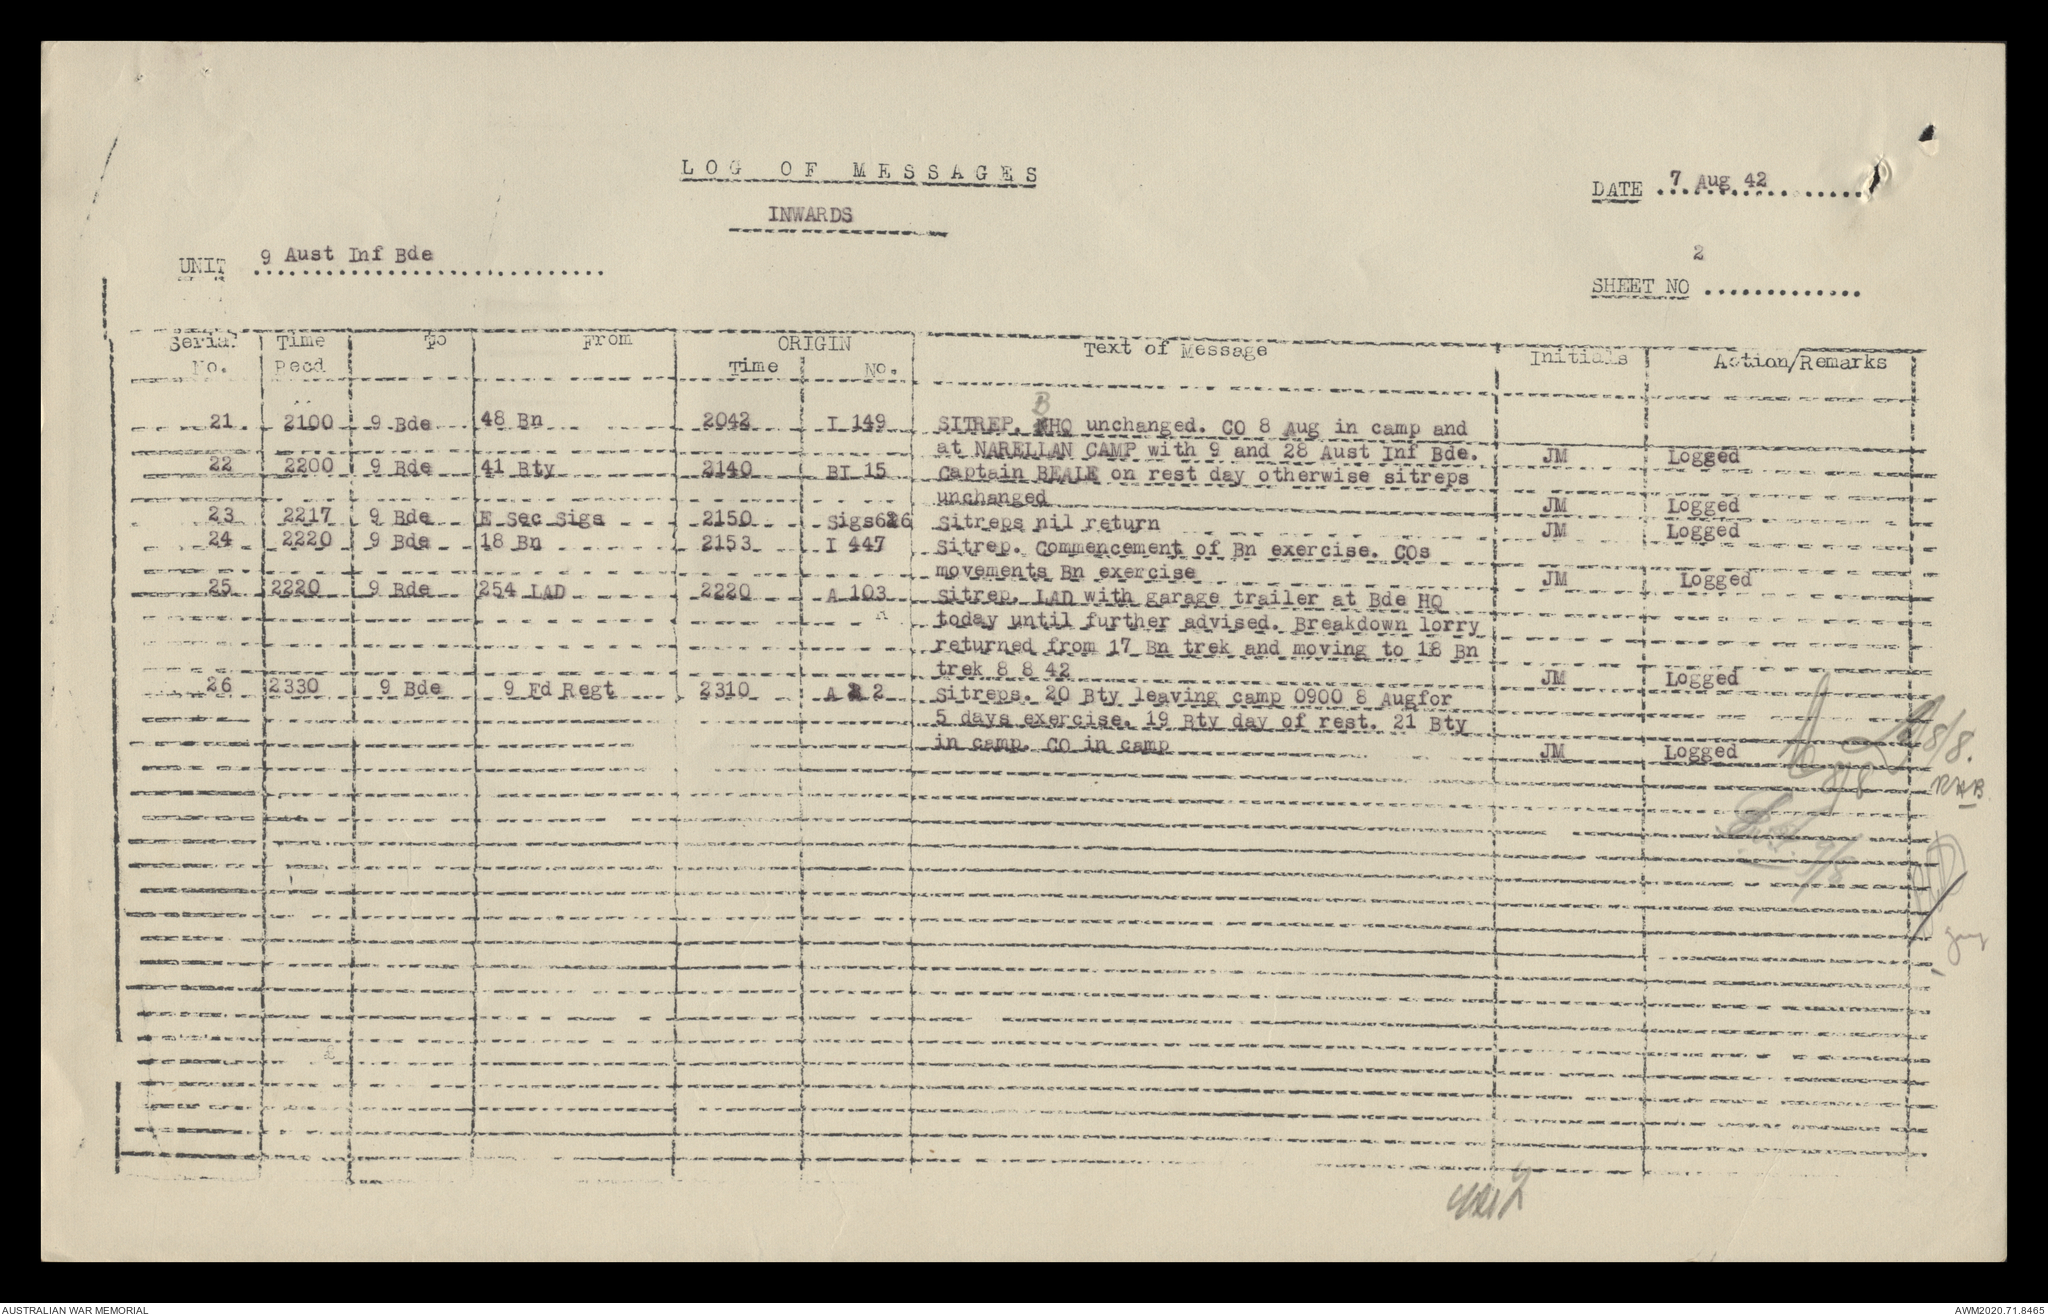 LOG OF MESSAGES
INWARDS
DATE 7 Aug 42
UNIT 9 Aust Inf Bde
SHEET NO 2
Serial No. Time Recd To From ORIGIN Time No. Text of Message Initials Action/Remarks
21 2100 9 Bde 48 Bn 2042 I 149 SITREP. BHQ unchanged. CO 8 Aug in camp and
at NARELLAN CAMP with 9 and 28 Aust Inf Bde. JM Logged
22 2200 9 Bde 41 Bty 2140 BI 15 Captain BEALE on rest day otherwise sitreps
unchanged JM Logged
23 2217 9 Bde E Sec Sigs 2150 Sigs626 Sitreps nil return JM Logged
24 2220 9 Bde 18 Bn 2153 I 447 Sitrep. Commencement of Bn exercise. COs
movements Bn exercise JM Logged
25 2220 9 Bde 254 LAD 2220 A 103 Sitrep. LAD with garage trailer at Bde HQ
today until further advised. Breakdown lorry
returned from 17 Bn trek and moving to 18 Bn
trek 8 8 42 JM Logged
26 2330 9 Bde 9 Fd Regt 2310 A 2 Sitreps. 20 Bty leaving camp 0900 8 Augfor
5 days exercise. 19 Bty day of rest. 21 Bty
in camp. CO in camp JM Logged
8/8.
8/8
RHB
9/8
AUSTRALIAN WAR MEMORIAL
AWM2020.71.8465